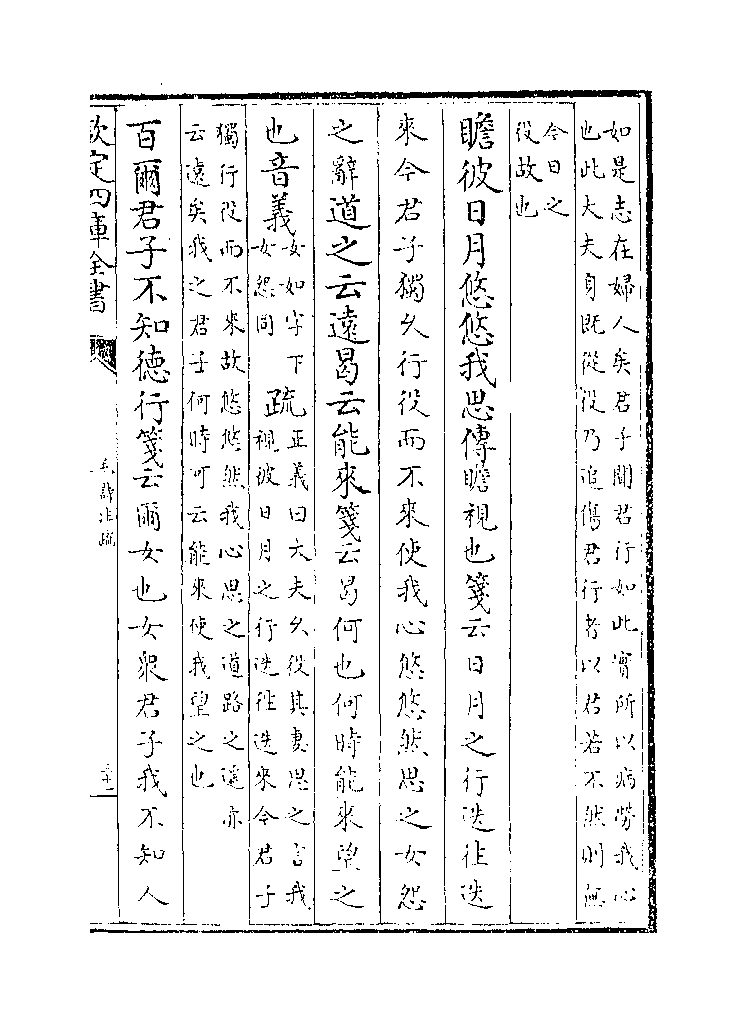 如是志在婦人矣君子聞君行如此實所以病勞我心
也此大夫身既從役乃追傷君行者以君若不然則無
今日之
役故也
瞻彼日月悠悠我思傳瞻視也箋云日月之行迭往迭
來今君子獨乆行役而不來使我心悠悠然思之女怨
之辭道之云遠曷云能來箋云曷何也何時能來望之
也音義
女如字下
女怨同
疏
正義曰大夫乆役其妻思之言我
視彼日月之行迭往迭來今君子
獨行役而不來故悠悠然我心思之道路之遠亦
云遠矣我之君子何時可云能來使我望之也
百爾君子不知德行箋云爾女也女衆君子我不知人
欽定四庫全書
毛詩注疏
三十一